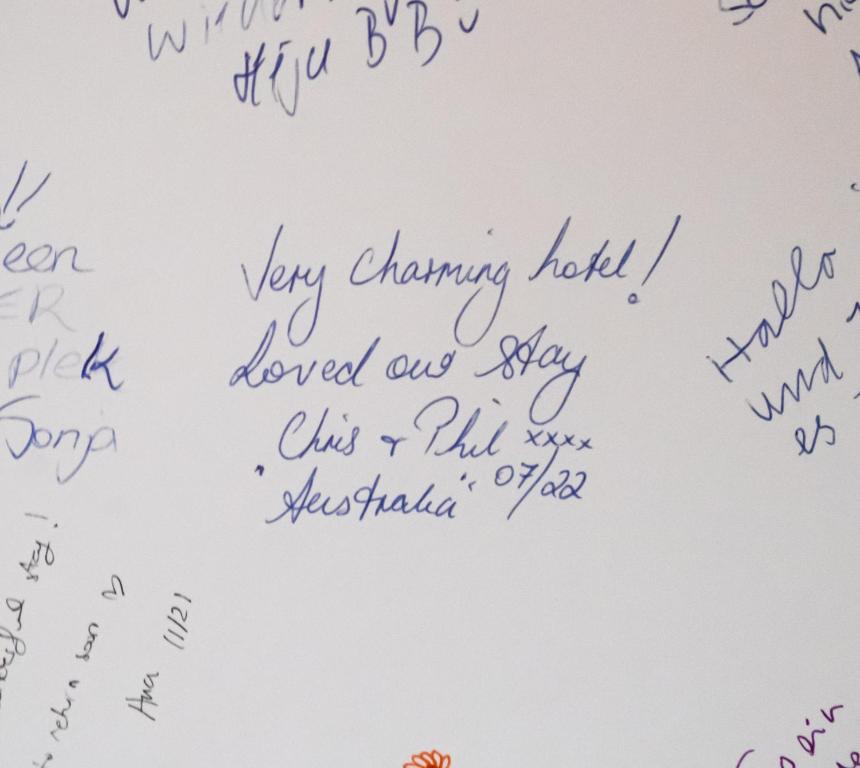 Hiju
!!
een
ER
plek
Sonja
Very charming hotel!
Loved our stay
Chris & Phil xxxx
"Australia" 07/22
Hallo
und
es
stay!
to return soon
Ana 11/21